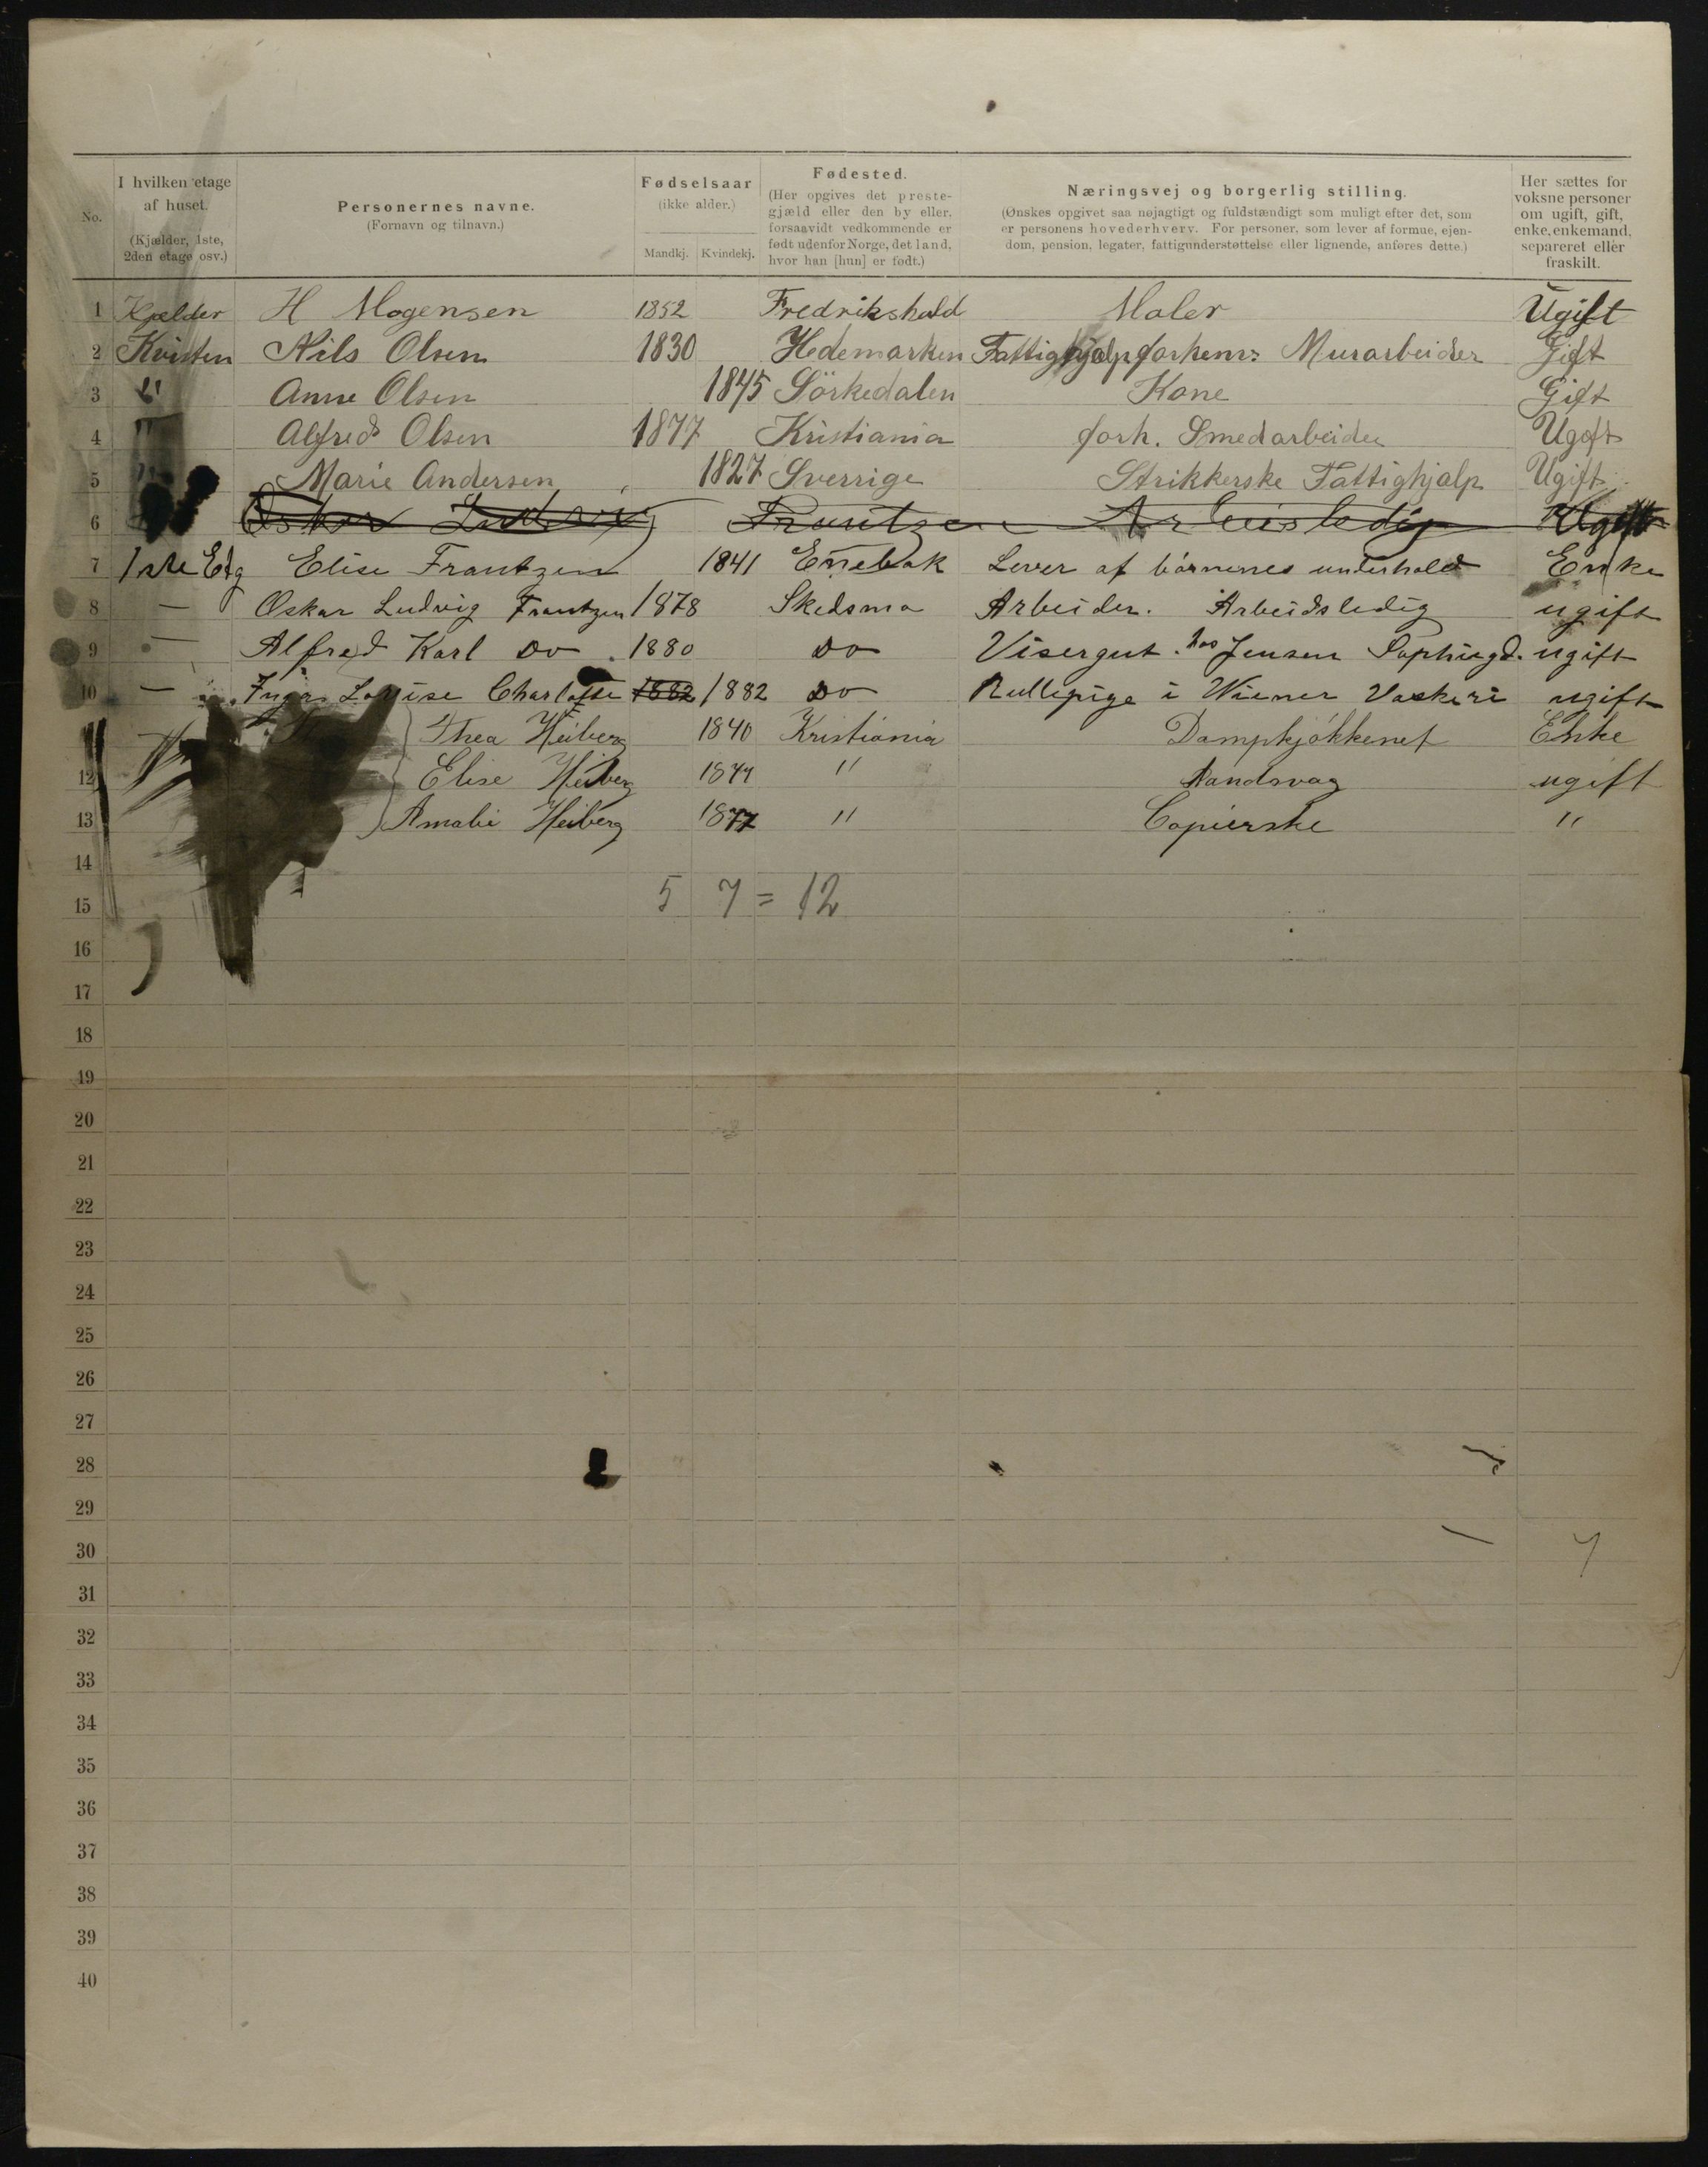 No.
I hvilken etage af huset. (Kjælder, 1ste, 2den etage osv.)
Personernes navne. (Fornavn og tilnavn.)
Fødselsaar (ikke alder.) Mandkj. Kvindekj.
Fødested. (Her opgives det prestegjæld eller den by eller, forsaavidt vedkommende er født udenfor Norge, det land, hvor han [hun] er født.)
Næringsvej og borgerlig stilling. (Ønskes opgivet saa nøjagtigt og fuldstændigt som muligt efter det, som er personens hovederhverv. For personer, som lever af formue, ejendom, pension, legater, fattigunderstøttelse eller lignende, anføres dette.)
Her sættes for voksne personer om ugift, gift, enke, enkemand, separeret eller fraskilt.
1 Kjælder H Mogensen 1852 Fredrikshald Maler Ugift
2 Kvisten Nils Olsen 1830 Hedemarken Fattighjælp forhen: Murarbeider Gift
3 " Anne Olsen 1845 Sörkedalen Kone Gift
4 " Alfred Olsen 1877 Kristiania forh. Smedarbeider Ugift
5 " Marie Andersen 1827 Sverrige Strikkerske Fattighjælp Ugift
6 Oskar Ludvig Frantzen Arbeisledig Ugift
7 1ste Etg Elise Frantzen 1841 Enebak Lever af børnenes underhold Enke
8 — Oskar Ludvig Frantzen 1878 Skedsmo Arbeider. Arbeidsledig ugift
9 — Alfred Karl Do 1880 Do Visergut hos Jensen Sophiegd. ugift
10 — Inga Lovise Charlotte 1882 1882 Do Rullepige i Wiener Vaskeri ugift
Thea Heiberg 1840 Kristiania Dampkjökkenet Enke
12 Elise Heiberg " ugift
13 Amalie Heiberg 1877 " Copierske "
14
15 5 7 = 12
16
17
18
19
20
21
22
23
24
25
26
27
28
29
30 7
31
32
33
34
35
36
37
38
39
40